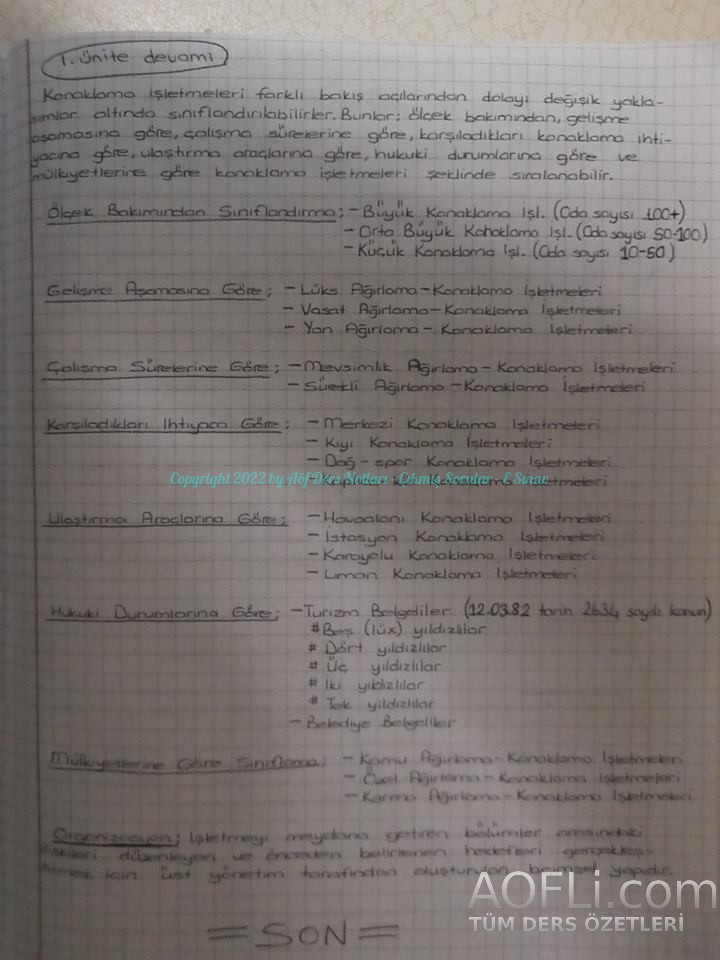 1. ünite devamı
Konaklama işletmeleri farklı bakış açılarından dolayı değişik yakla-
şımlar altında sınıflandırılabilirler. Bunlar; ölçek bakımından, gelişme
aşamasına göre, çalışma sürelerine göre, karşıladıkları konaklama ihti-
yacına göre, ulaştırma araçlarına göre, hukuki durumlarına göre ve
mülkiyetlerine göre konaklama işletmeleri şeklinde sıralanabilir.
Ölçek Bakımından Sınıflandırma; - Büyük Konaklama İşl. (Oda sayısı 100+)
- Orta Büyük Konaklama İşl. (Oda sayısı 50-100)
- Küçük Konaklama İşl. (Oda sayısı 10-50)
Gelişme Aşamasına Göre; - Lüks Ağırlama - Konaklama İşletmeleri
- Vasat Ağırlama - Konaklama İşletmeleri
- Yan Ağırlama - Konaklama İşletmeleri
Çalışma Sürelerine Göre; - Mevsimlik Ağırlama - Konaklama İşletmeleri
- Sürekli Ağırlama - Konaklama İşletmeleri
Karşıladıkları İhtiyaca Göre; - Merkezi Konaklama İşletmeleri
- Kıyı Konaklama İşletmeleri
- Dağ - spor Konaklama İşletmeleri
Copyright 2022 by Aöf Ders Notları - Çıkmış Sorular - E Sınav
- Kaplıca Konaklama İşletmeleri
Ulaştırma Araçlarına Göre; - Havaalanı Konaklama İşletmeleri
- İstasyon Konaklama İşletmeleri
- Karayolu Konaklama İşletmeleri
- Liman Konaklama İşletmeleri
Hukuki Durumlarına Göre; - Turizm Belgeliler (12.03.82 tarih 2634 sayılı kanun)
# Beş (lüx) yıldızlılar
# Dört yıldızlılar
# Üç yıldızlılar
# İki yıldızlılar
# Tek yıldızlılar
- Belediye Belgeliler
Mülkiyetlerine Göre Sınıflama; - Kamu Ağırlama - Konaklama İşletmeleri
- Özel Ağırlama - Konaklama İşletmeleri
- Karma Ağırlama - Konaklama İşletmeleri
Organizasyon; işletmeyi meydana getiren bölümler arasındaki
ilişkileri düzenleyen ve önceden belirlenen hedefleri gerçekleş-
tirmek için üst yönetim tarafından oluşturulan biçimsel yapıdır.
AOFLi.com
TÜM DERS ÖZETLERİ
= SON =